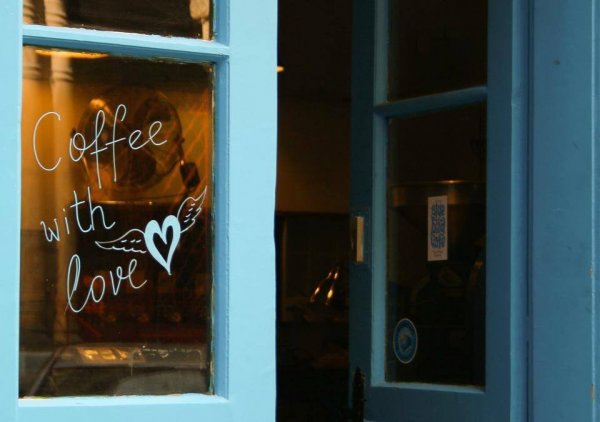 Coffee
with
love